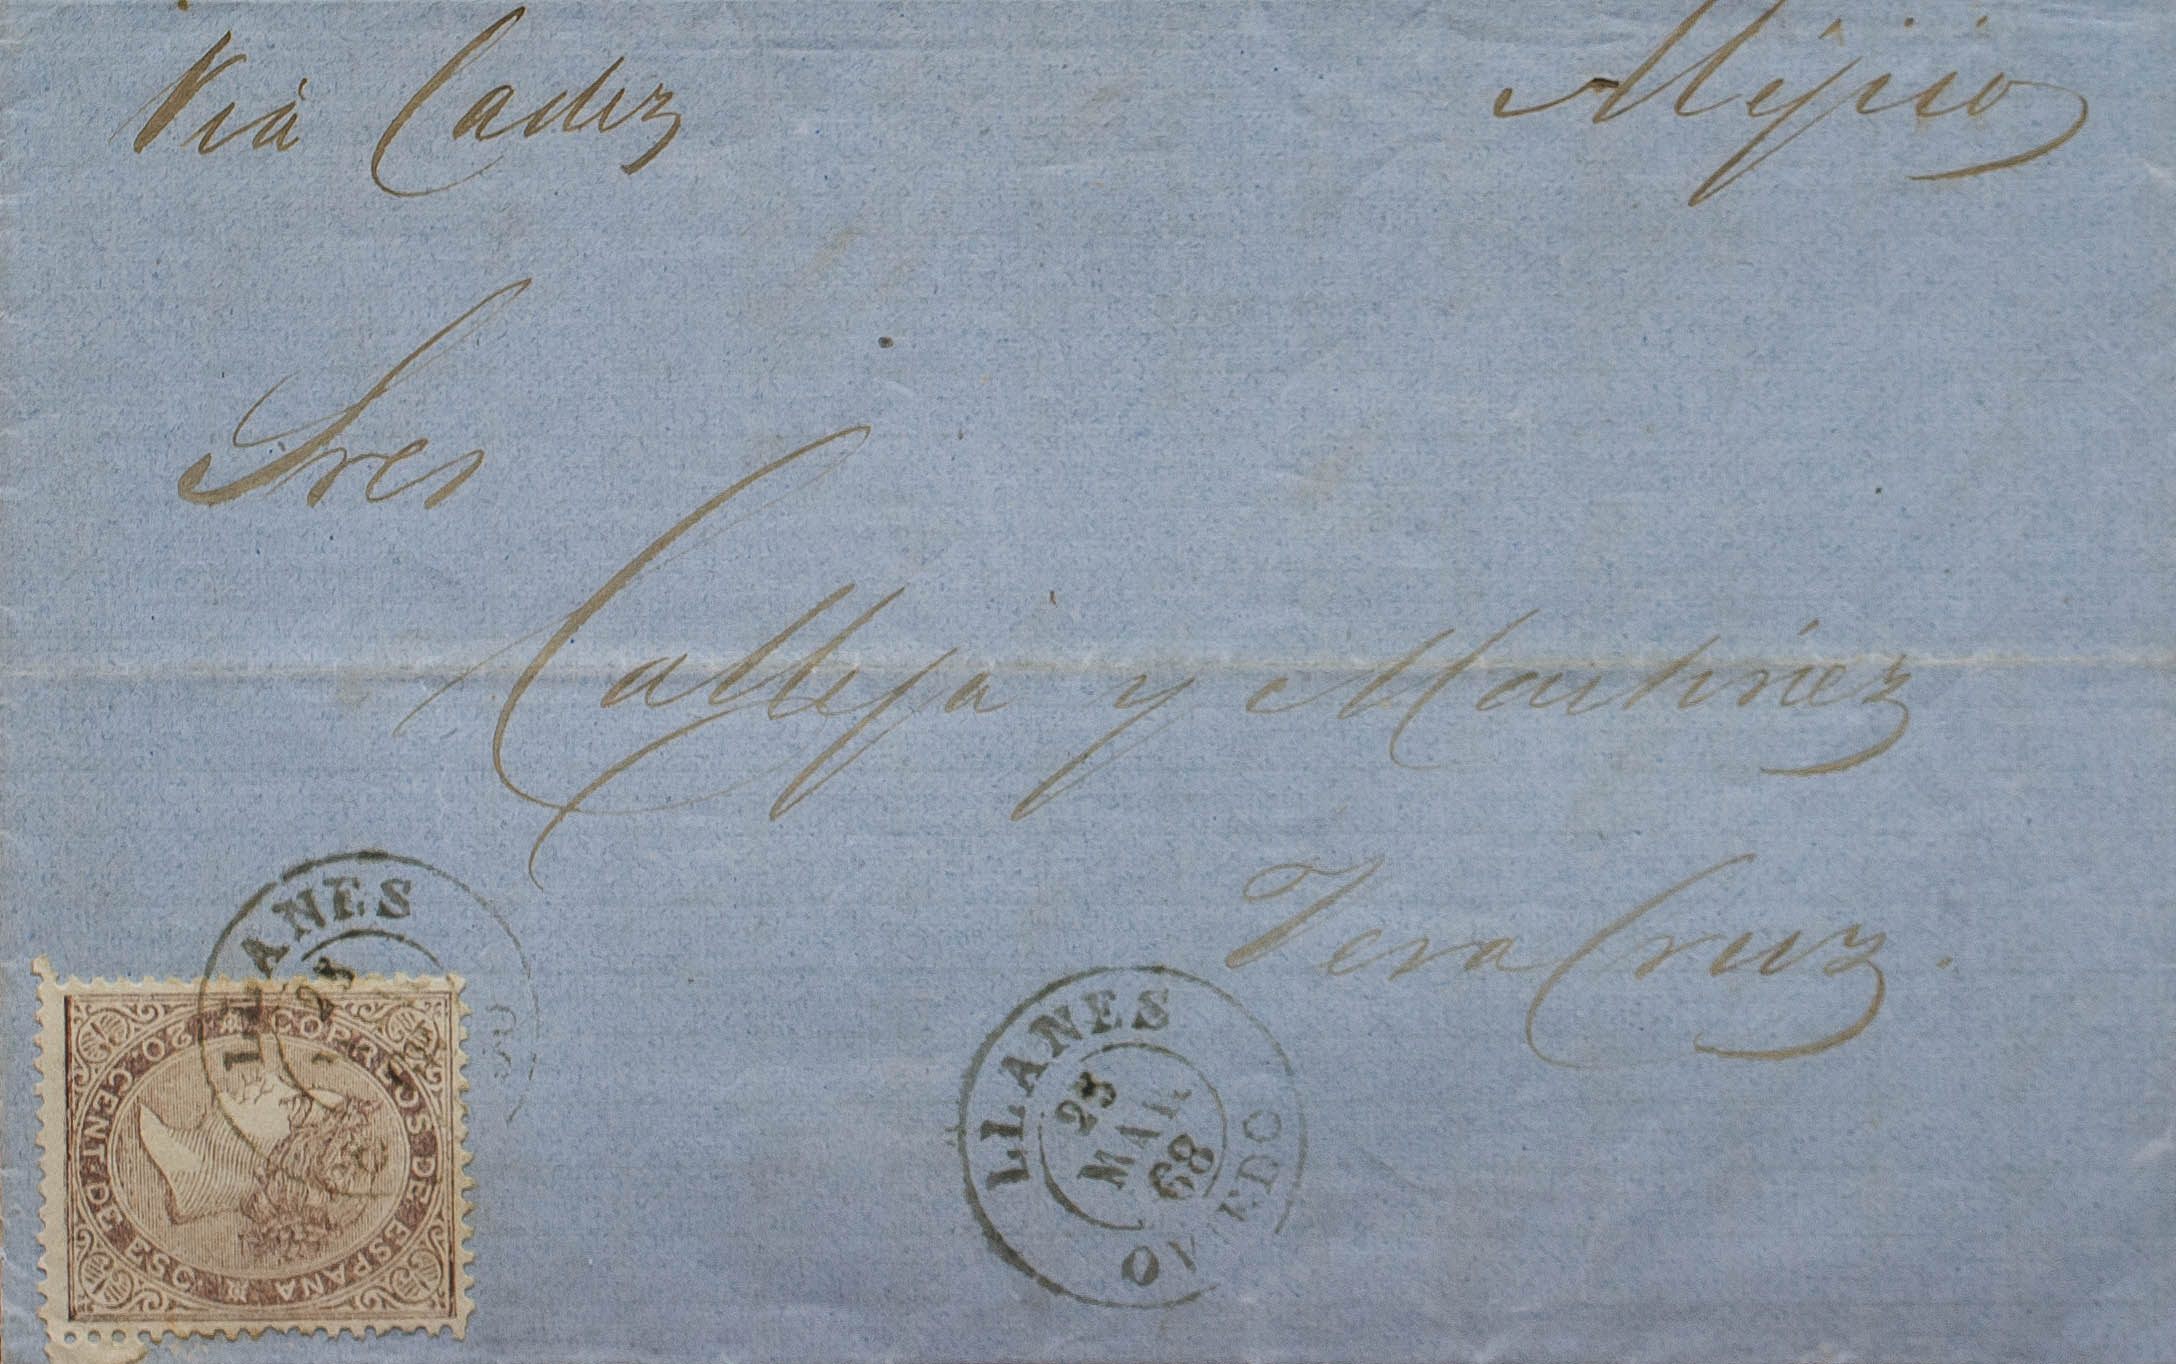 Via Cadiz
Mejico
Sres
Calleja y Martinez
Vera Cruz.
LLANES
23
CORREOS DE ESPAÑA
20 CENT. DE ESC.
LLANES
23
MAR
68
OVIEDO